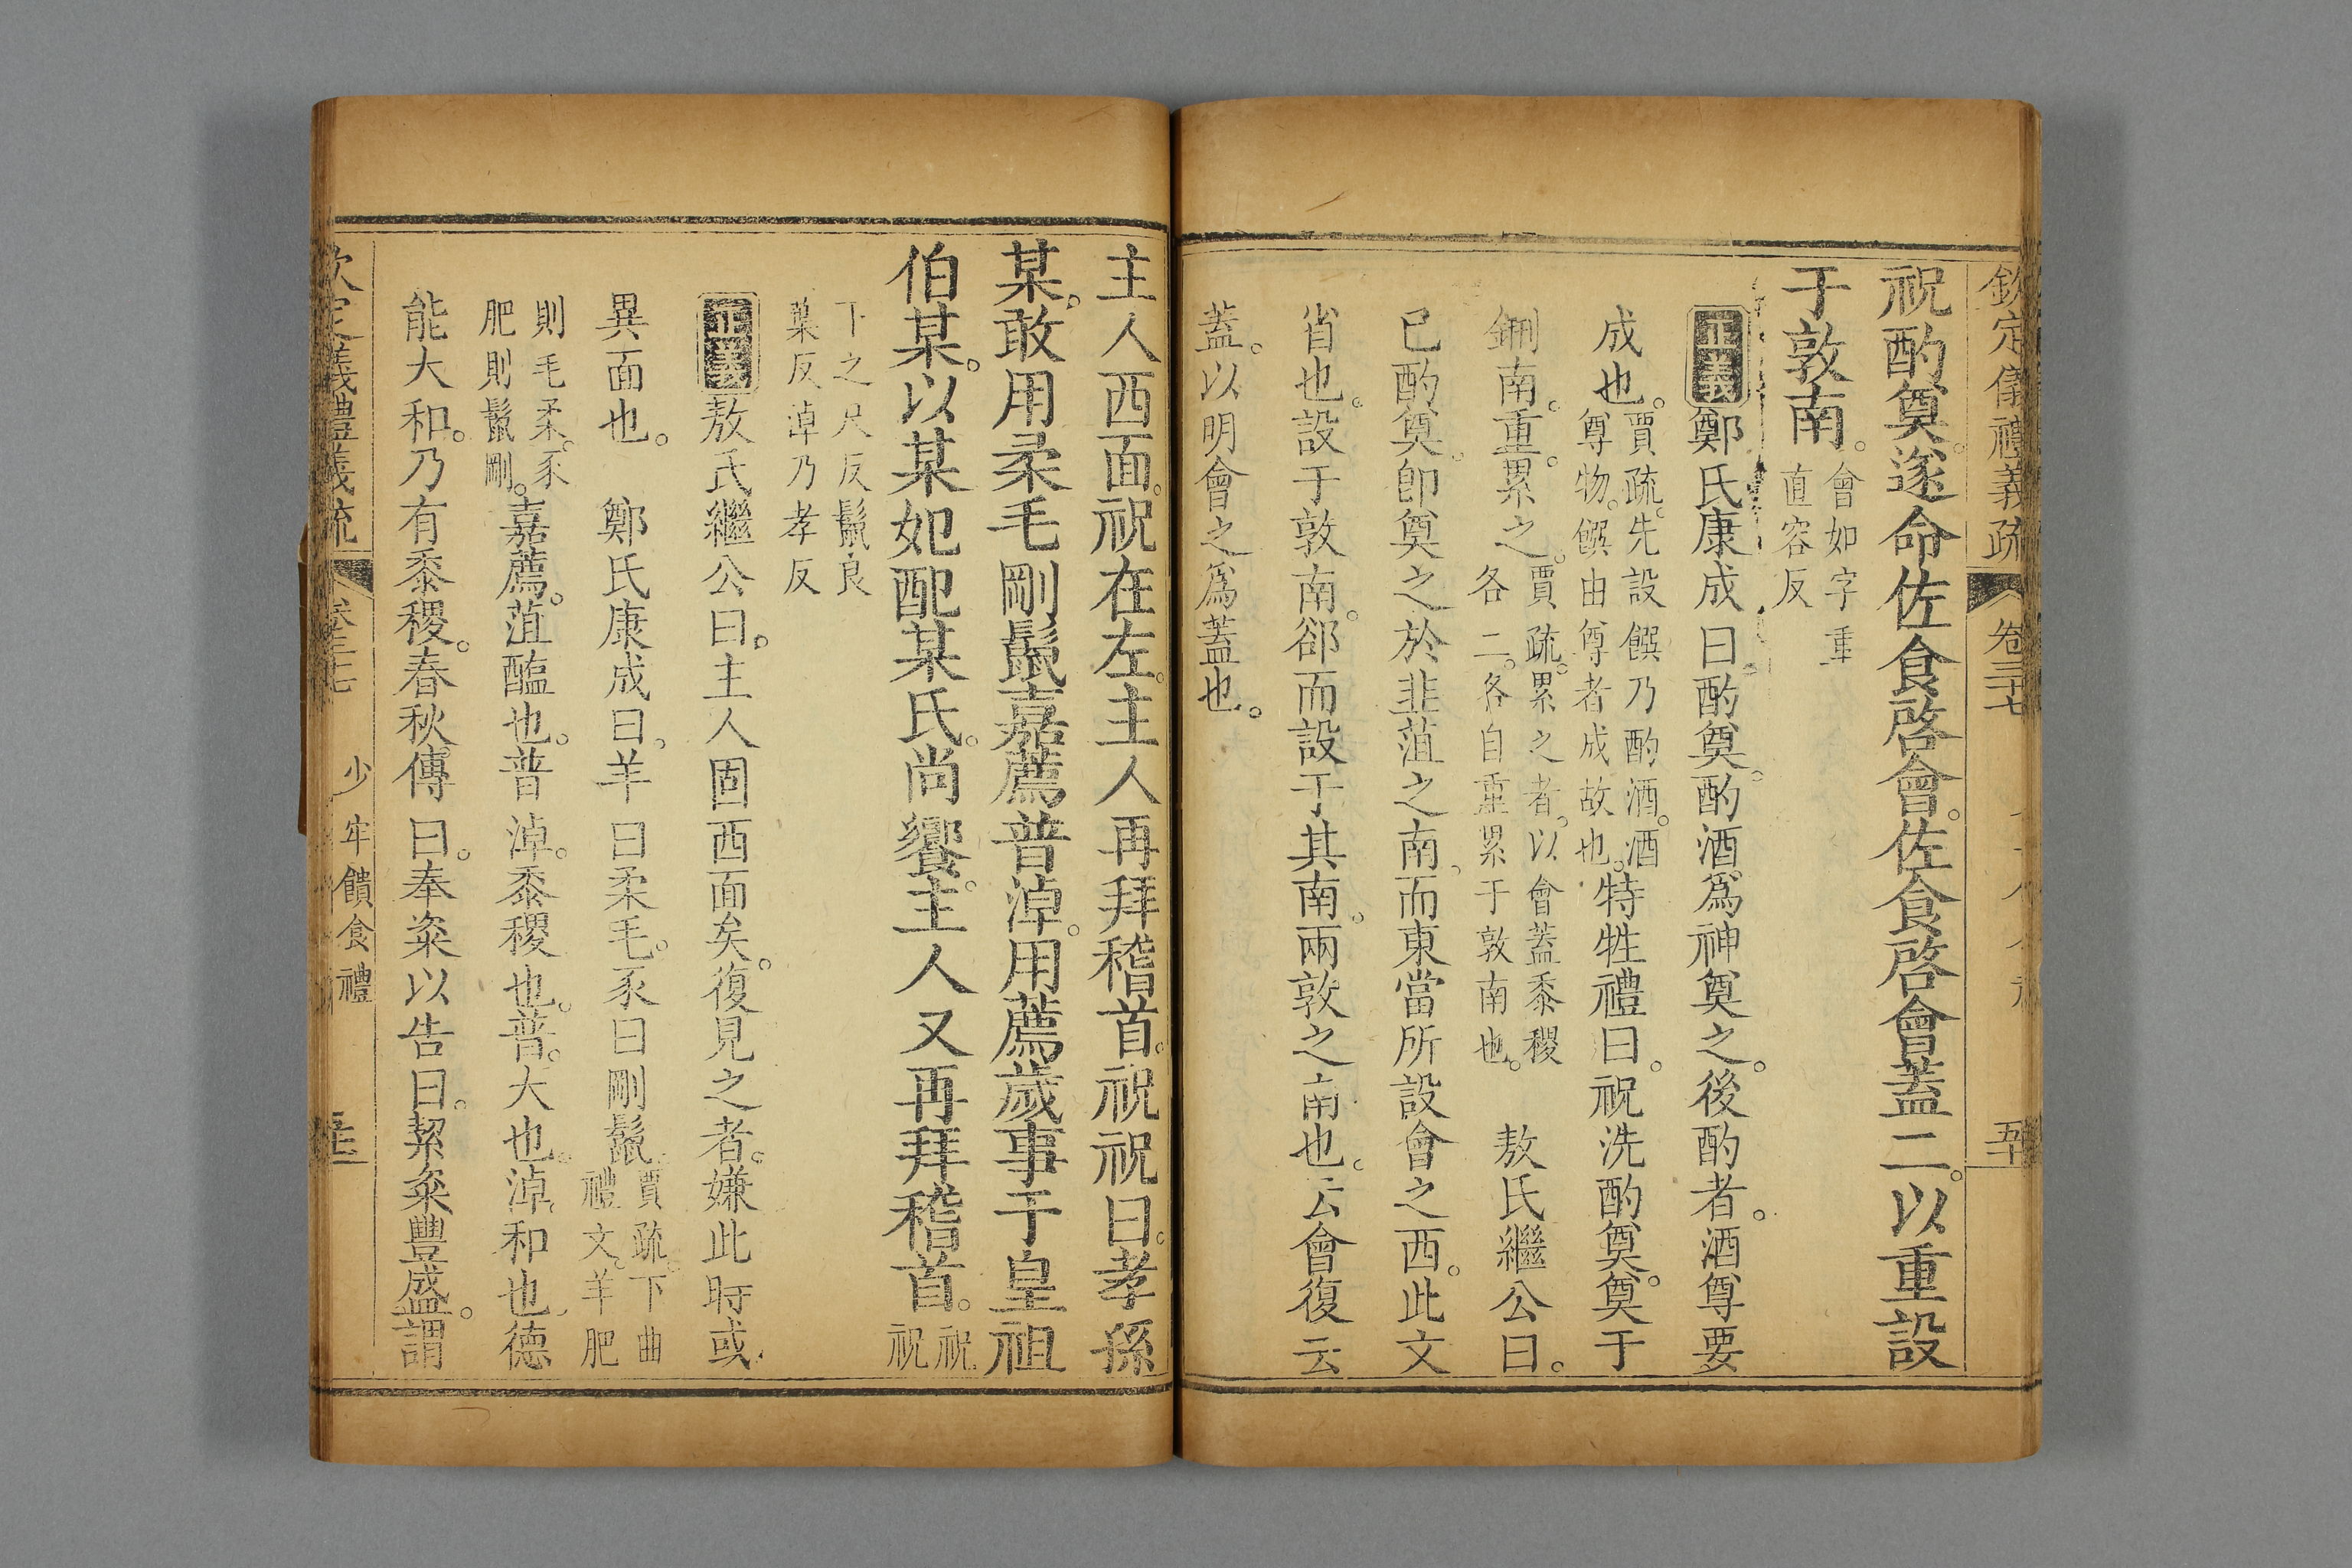 欽定儀禮義疏 卷三十七 五十
祝酌奠。遂命佐食啓會。佐食啓會蓋二。以重設
于敦南。會如字重直容反
正義鄭氏康成曰。酌奠。酌酒爲神奠之。後酌者。酒尊要
成也。賈疏。先設饌乃酌酒。酒尊物。饌由尊者成故也。特牲禮曰。祝洗酌奠。奠于
鉶南。重。累之。賈疏。累之者。以會蓋黍稷各二。各自重累于敦南也。 敖氏繼公曰。
已酌奠。卽奠之於韭菹之南。而東當所設會之西。此文
省也。設于敦南。卻而設于其南。兩敦之南也。云會復云
蓋。以明會之爲蓋也。
主人西面。祝在左。主人再拜稽首。祝祝曰。孝孫
某。敢用柔毛剛鬣嘉薦普淖。用薦歲事于皇祖
伯某。以某妃配某氏。尚饗。主人又再拜稽首。祝祝
下之尺反鬣良葉反淖乃孝反
正義敖氏繼公曰。主人固西面矣。復見之者。嫌此時或
異面也。 鄭氏康成曰。羊曰柔毛。豕曰剛鬣。賈疏。下曲禮文。羊肥
則毛柔。豕肥則鬣剛。嘉薦。菹醢也。普淖。黍稷也。普。大也。淖。和也。德
能大和。乃有黍稷。春秋傳曰。奉粢以告曰。絜粢豐盛。謂
欽定儀禮義疏 卷三十七 少牢饋食禮